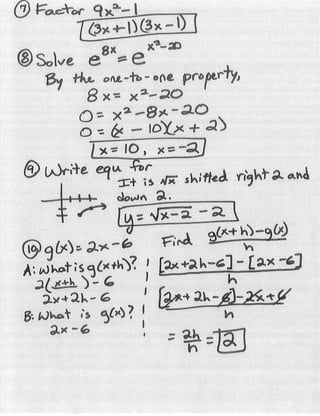 ⑦ Factor 9x²-1
(3x+1)(3x-1)
⑧ Solve e^8x = e^x²-20
By the one-to-one property,
8x = x²-20
0 = x²-8x-20
0 = (x - 10)(x + 2)
x=10, x=-2
⑨ Write equ for
It is √x shifted right 2 and
down 2.
y = √x-2 - 2
⑩ g(x) = 2x-6 Find g(x+h)-g(x)
h
A: What is g(x+h)?
2(x+h)-6
2x+2h-6
B: What is g(x)?
2x-6
[2x+2h-6]-[2x-6]
h
[2x+2h-6]-2x+6
h
= 2h/h = 2